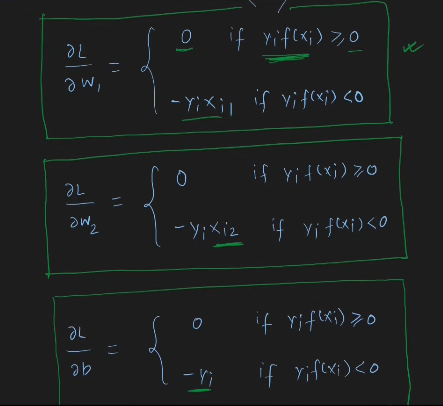 ∂L/∂w₁ = { 0 if yᵢf(xᵢ) ⩾ 0
−yᵢxᵢ₁ if yᵢf(xᵢ) < 0
∂L/∂w₂ = { 0 if yᵢf(xᵢ) ⩾ 0
−yᵢxᵢ₂ if yᵢf(xᵢ) < 0
∂L/∂b = { 0 if yᵢf(xᵢ) ⩾ 0
−yᵢ if yᵢf(xᵢ) < 0